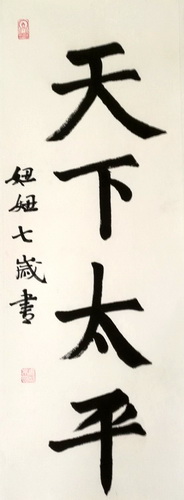 天下太平
妞妞七歲書